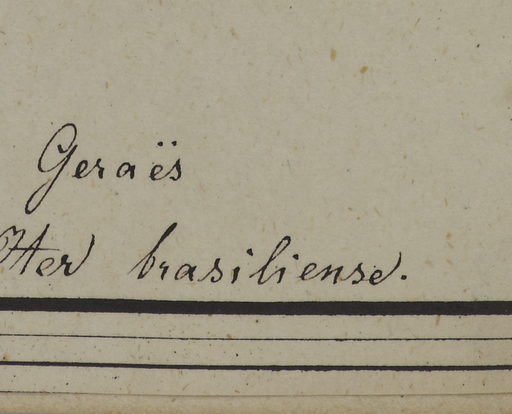 Geraës
Iter brasiliense.